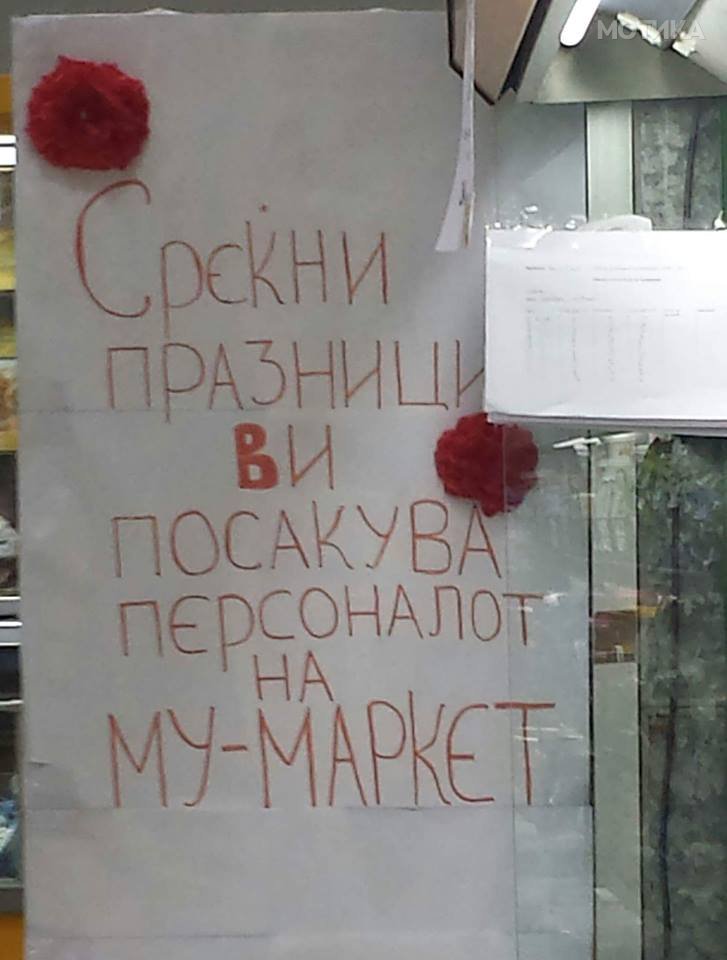 МОТИКА
Среќни
ПРАЗНИЦИ
ВИ
ПОСАКУВА
ПЕРСОНАЛОТ
НА
МУ-МАРКЕТ